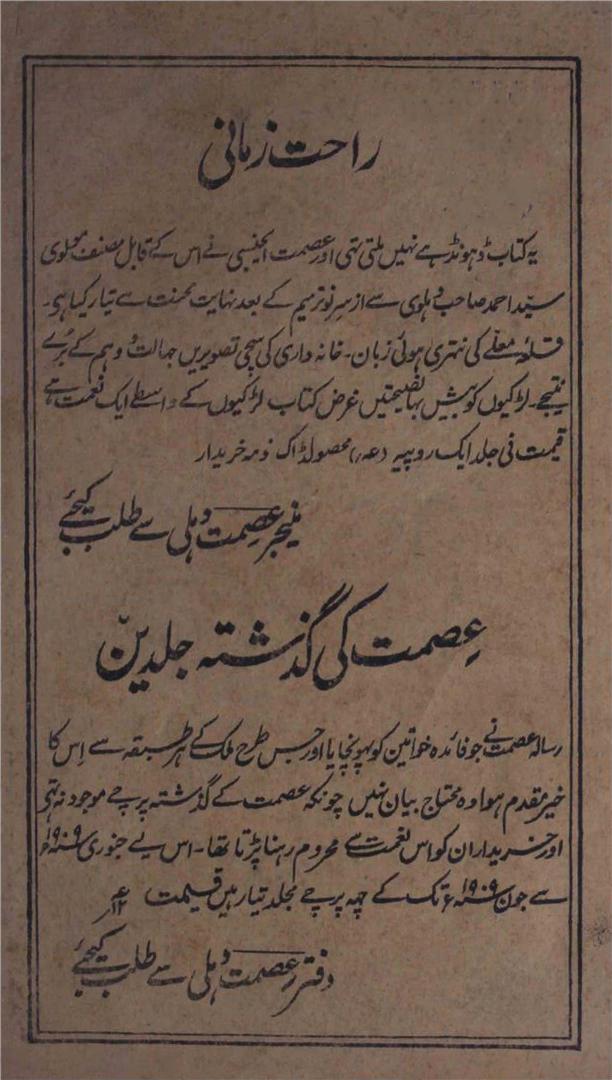 راحت زمانی
یہ کتاب ڈہونڈہے نہیں ملتی تہی اور عصمت ایجنسی نے اس کے قابل مصنف مولوی
سید احمد صاحب دہلوی سے از سرنو ترمیم کے بعد نہایت محنت سے تیار کیا ہی۔
قلعۂ معلے کی نتہری ہوئی زبان۔ خانہ داری کی سچی تصویریں جہالت و وہم کے بُرے
نتیجے۔ لڑکیوں کو بیش بہا نصیحتیں غرض کتاب لڑکیوں کے واسطے ایک نعمت ہے
قیمت فی جلد ایک روپیہ (عہ) محصولڈاک ذمہ خریدار
منیجر عصمت دہلی سے طلب کیجئے
عصمت کی گذشتہ جلدیں
رسالہ عصمت نے جو فائدہ خواتین کو پہونچایا اور جس طرح ملک کے ہر طبقہ سے اِس کا
خیر مقدم ہوا وہ محتاج بیان نہیں چونکہ عصمت کے گذشتہ پرچے موجود نہ تہی
اور خریداران کو اس نعمت سے محروم رہنا پڑتا تھا۔ اس لیے جنوری سنہ ۱۹۰۹ء
سے جون سنہ ۱۹۰۹ء تک کے چہہ پرچے مجلد تیار ہیں قیمت
دفتر عصمت دہلی سے طلب کیجئے